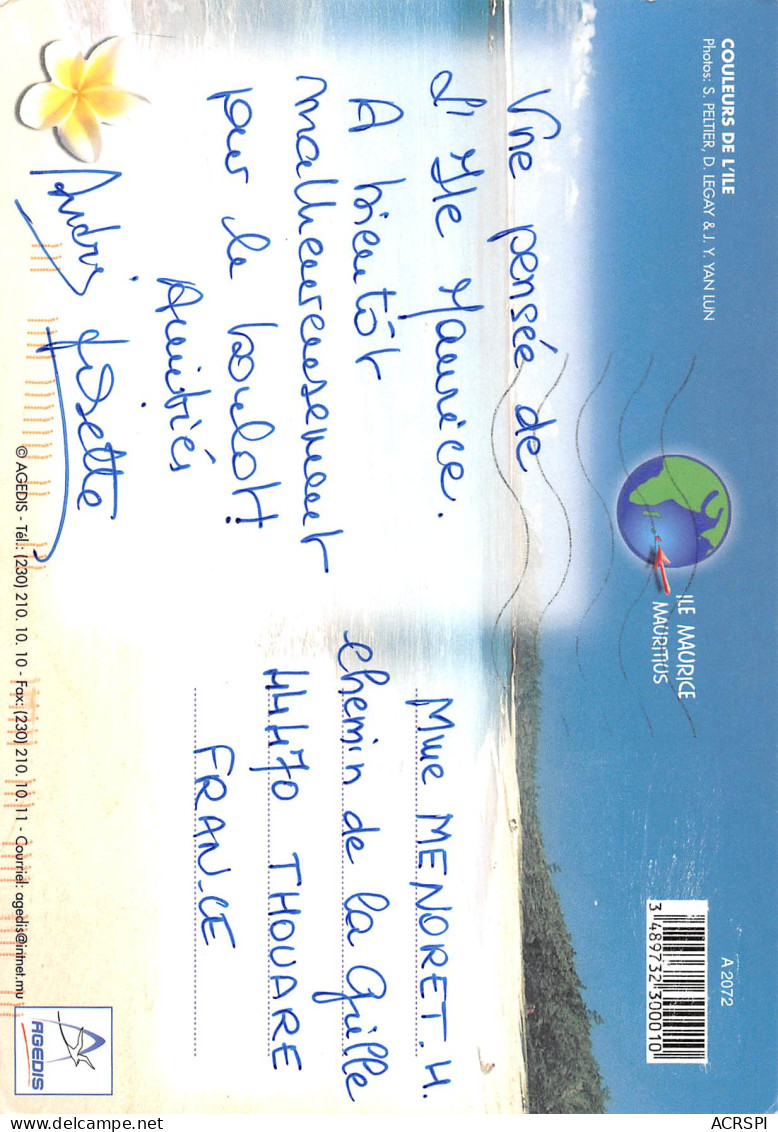 COULEURS DE L'ILE
Photos: S. PELTIER, D. LEGAY & J. Y. YAN LUN
Une pensée de
L'Ile Maurice.
A bientôt
malheureusement
pour le boulot!
Amitiés
André Josette
ILE MAURICE
MAURITIUS
A 2072
3 489732 300010
Mme MENORET. H.
chemin de la Grille
44470 THOUARE
FRANCE
© AGEDIS - Tél.: (230) 210. 10. 10 - Fax: (230) 210. 10. 11 - Courriel: agedis@intnet.mu
AGEDIS
delcampe.net
ACRSPI